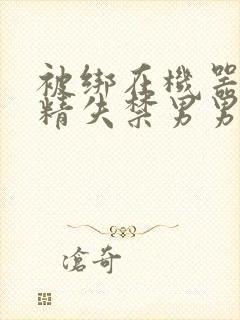 被绑在機器
精失禁男男
滄奇